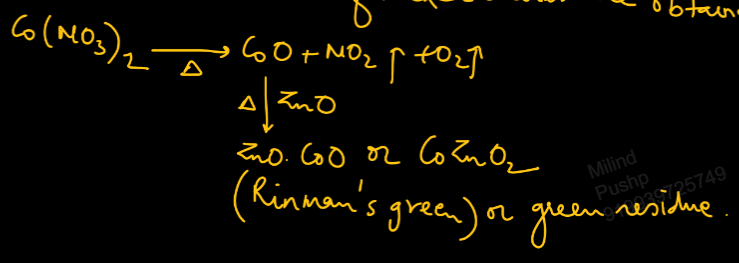 be obtain
Co(NO3)2 ⟶ CoO + NO2 ↑ + O2 ↑
Δ
Δ ↓ ZnO
ZnO. CoO or CoZnO2
(Rinman's green) or green residue.
Milind
Pushp